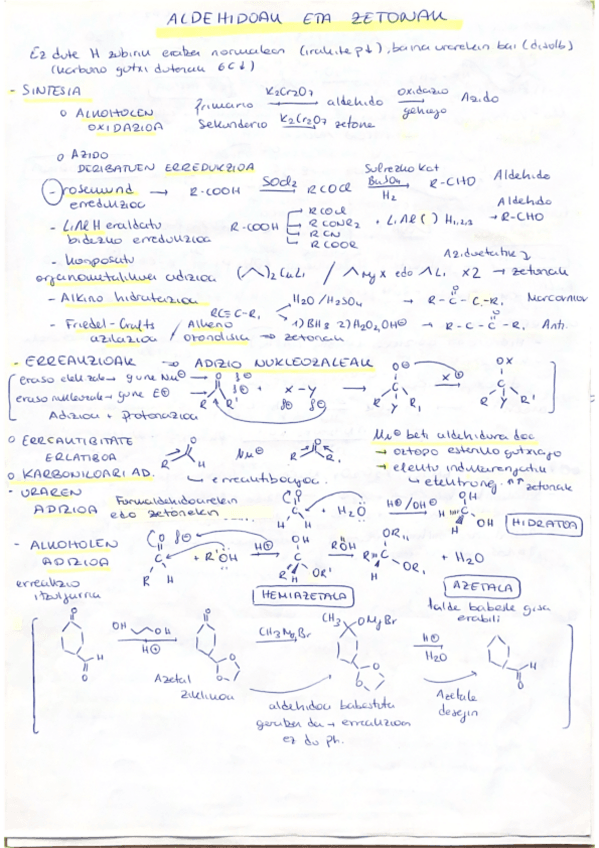 ALDEHIDOAK ETA ZETONAK
Ez dute H zubirik eratzen normalean (irakite p↓), baina urarekin bai (disolb)
(karbono gutxi dutenak 6C↓)
- SINTESIA
o ALKOHOLEN OXIDAZIOA
primario K2Cr2O7 aldehido oxidazio gehiago Azido
Sekundario K2Cr2O7 zetona
o AZIDO DERIBATUEN ERREDUKZIOA
- rosemund erredukzioa → R-COOH SOCl2 RCOCl Sufrezko kat BaSO4 H2 R-CHO Aldehido
- LiAlH eraldatu bidezko erredukzioa R-COOH RCOCl RCONR2 RCN RCOOR + LiAl( )H1,2,3 → R-CHO Aldehido
- Konposatu organometalikoen adizioa ( )2CuLi / MgX edo Li x2 → zetonak
- Alkino hidratazioa RC≡C-R1 H2O/H2SO4 → R-C-C-R1 O
- Friedel-Crafts azilazioa / Alkeno → zetonak 1) BH3 2) H2O2, OH⊖ → R-C-C-R1 O Anti.
- ERREAKZIOAK → ADIZIO NUKLEOZALEAK
eraso elektrozale → gune Nu⊖
eraso nukleozale → gune E⊕
Adizioa + Protonazioa
O R R' + X-Y → O⊖ C R Y R1 X⊕ → OX C R Y R'
o ERREAKTIBITATE ERLATIBOA
O R H Nu⊖ O R R1
erreaktiboagoa
Nu⊖ beti aldehidora doa
→ oztopo esteriko gutxiago
→ efektu induktiboengatik
elektroneg. ↑↑ zetonak
o KARBONILOARI AD.
- URAREN ADIZIOA
Formaldehidoarekin edo zetonekin ......
H H + H2O H⊕/OH⊖ OH C H H OH HIDRATOA
- ALKOHOLEN ADIZIOA
erreakzio itzulgarria
O C R H + R'OH H⊕ OH C R H OR' R'OH OR1 C R H OR' + H2O
HEMIAZETALA
AZETALA
talde babesle gisa erabili
O H O OH OH H⊕ O O O CH3MgBr CH3 OMgBr O O H⊕ H2O H O
Azetal ziklikoa
aldehidoa babestuta geratzen da → erreakzioan ez du ph.
Azetala desegin